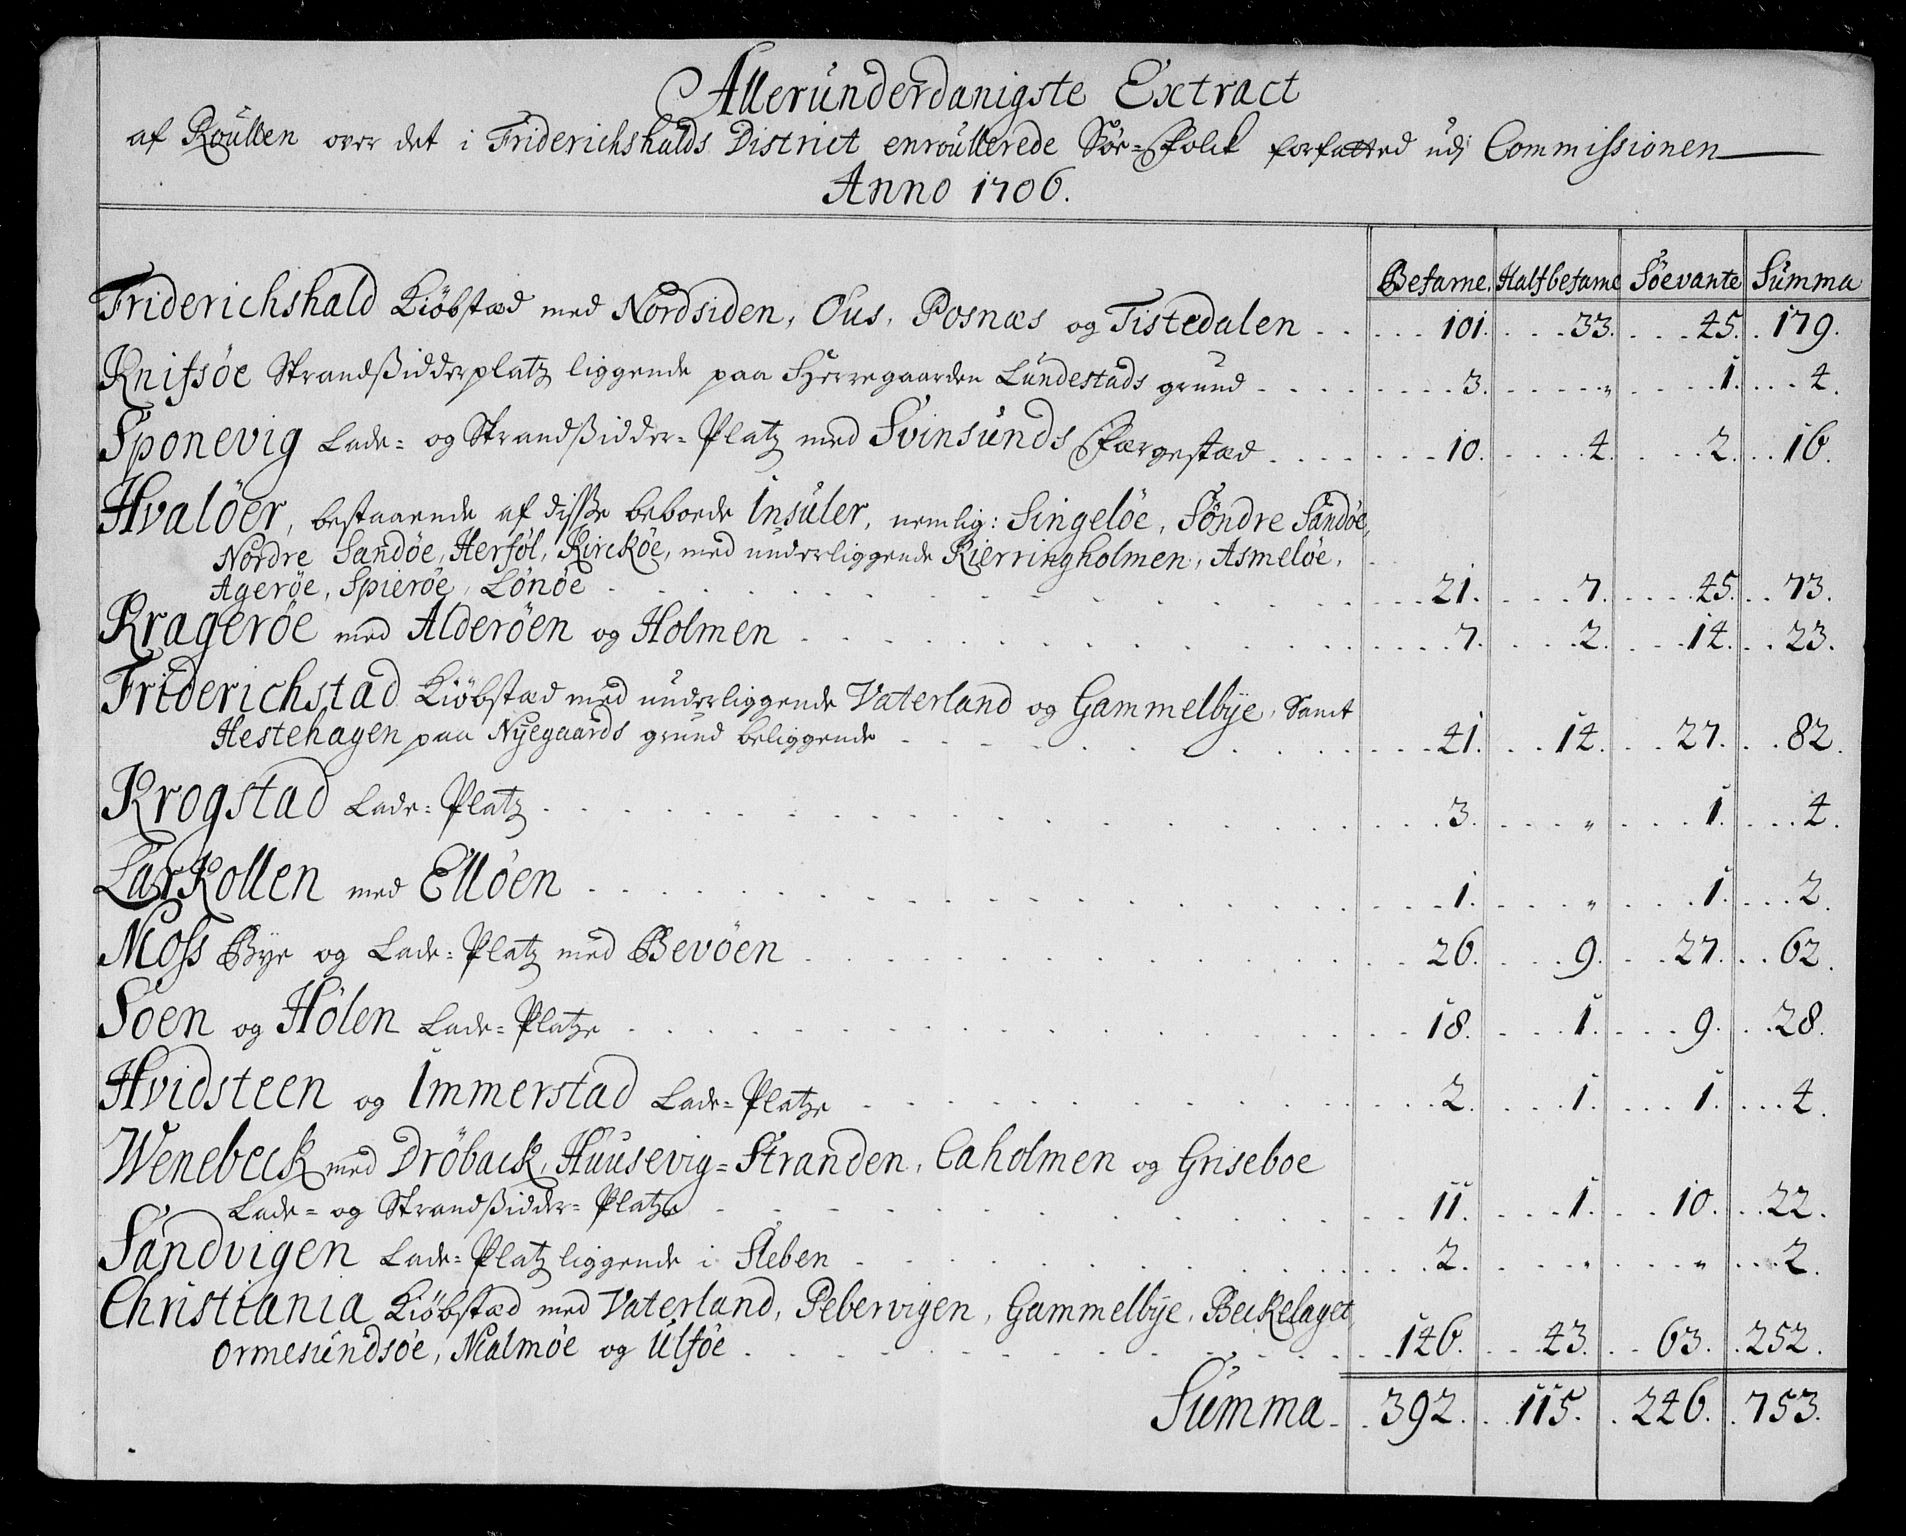 Alleründerdanigste Extract
af Roüllen over det i Friderichshalds District enroüllerede Söe=Folck forfatted udj Commissionen
Anno 1706.
Befarne. Halfbefarne Söevante Summa
Friderichshald Kiöbstæd med Nordsiden, Ous, Posnæs og Tistedalen . . . . . 101. . . . 33. . . . 45. . 179.
Knifsöe Strandßidderplatz liggende paa Herregaarden Lündestads grund . . . . . 3. . . . " . . . 1. . . . 4.
Sponevig Lade= og Strandßidder=Platz med Svinsünds Færgestæd . . . . . 10. . . . 4. . . . 2. . . 16.
Hvalöer, bestaaende af disse beboede Insüler, nemlig: Singelöe, Söndre Sandöe,
Nordre Sandöe, Herföl, Kircköe, med underliggende Kierringholmen, Asmelöe,
Ageröe, Spieröe, Lönöe . . . . . 21. . . . 7. . . . 45. . . 73.
Krageröe med Alderöen og Holmen . . . . . 7. . . . 2. . . . 14. . . 23.
Friderichstad Kiöbstæd med underliggende Vaterland og Gammelbÿe, Samt
Hestehagen paa Nÿegaards grund beliggende . . . . . 41. . . 14. . . 27. . . 82.
Krogstad Lade=Platz . . . . . 3. . . . " . . . 1. . . . 4.
Larkollen med Ellöen . . . . . 1. . . . " . . . 1. . . . 2.
Moss Bye og Lade=Platz med Bevöen . . . . . 26. . . 9. . . 27. . . 62.
Soen og Hölen Lade=Platze . . . . . 18. . . . 1. . . . 9. . . 28.
Hvidsteen og Immerstad Lade=Platze . . . . . 2. . . . 1. . . . 1. . . . 4.
Wenebeck med Dröback, Huusevig=Stranden, Caholmen og Griseboe
Lade= og Strandßidder=Platze . . . . . 11. . . . 1. . . 10. . . 22.
Sandvigen Lade=Platz liggende i Sleben . . . . . 2. . . . " . . . " . . . 2.
Christiania Kiöbstæd med Vaterland, Pebervigen, Gammelbÿe, Beckelaget,
Ormesündsöe, Malmöe og Ulföe . . . . . 146. . . 43. . . 63. . 252.
Summa . . 392. . . 115. . 246. . 753.